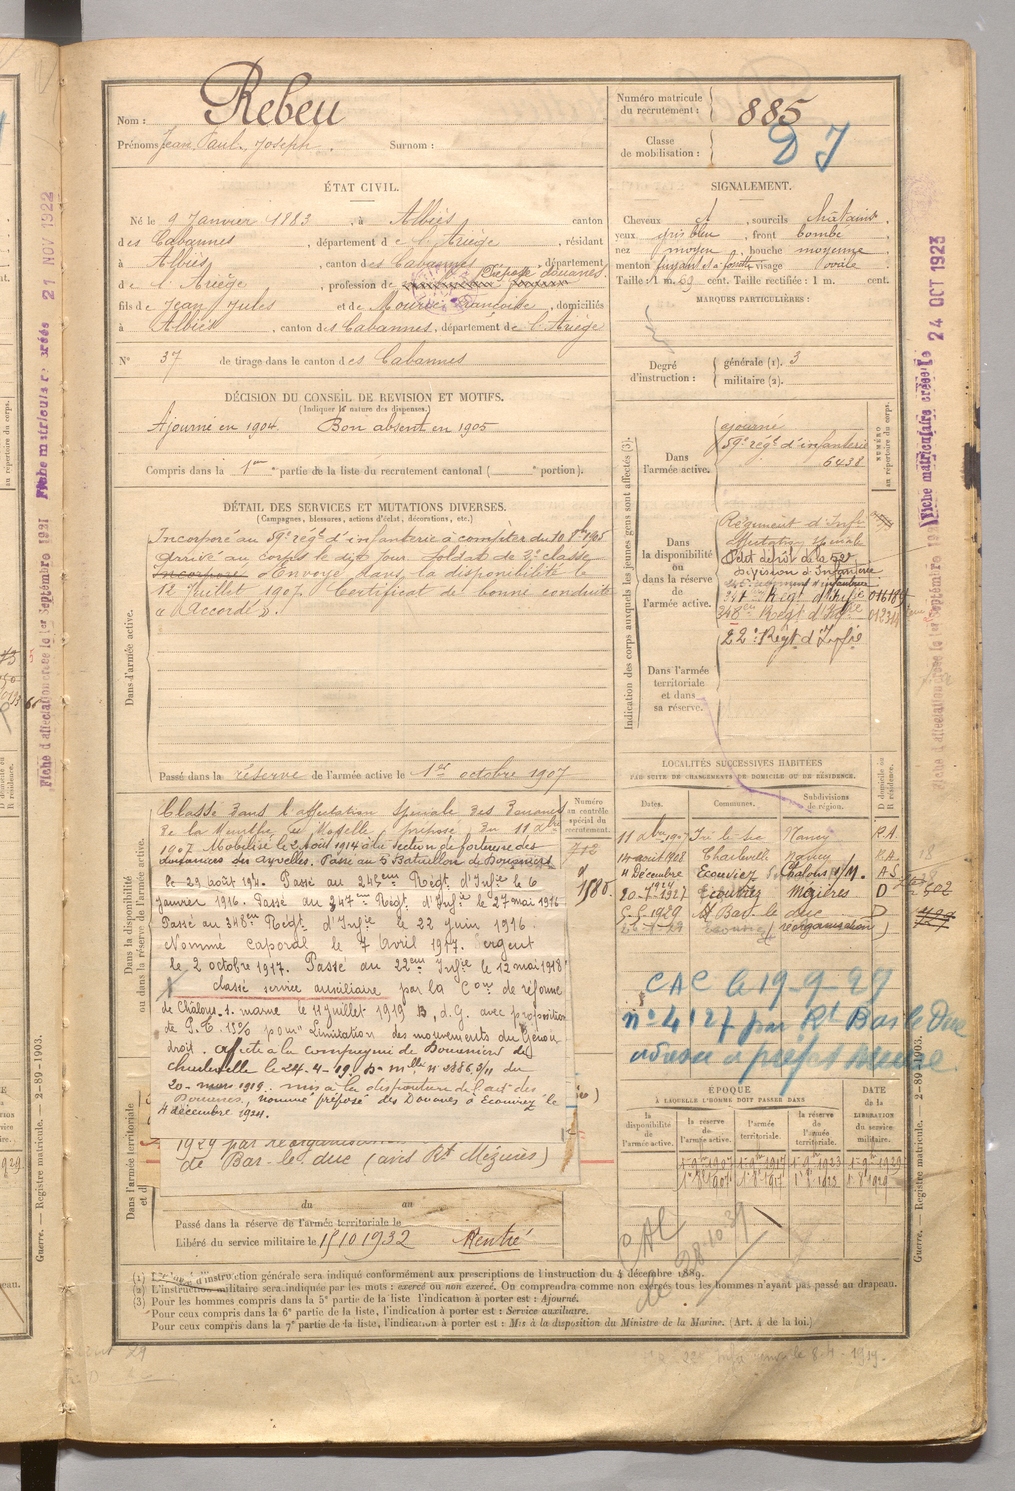 Nom : Rebeu
Prénoms Jean Paul, Joseph. Surnom :
Numéro matricule du recrutement : 885
Classe de mobilisation :
ÉTAT CIVIL.
Né le 9 Janvier 1883, à Albiès canton
des Cabannes, département de l'Ariège, résidant
à Albiès, canton des Cabannes, département
de l'Ariège, profession de Préposé douanes.
fils de Jean Jules et de Mourié Françoise, domiciliés
à Albiès, canton des Cabannes, département de l'Ariège
N° 37 de tirage dans le canton des Cabannes
SIGNALEMENT.
Cheveux et, sourcils châtains
yeux gris bleu, front bombé
nez moyen, bouche moyenne
menton fuyant et à fossette visage ovale
Taille : 1 m. 69 cent. Taille rectifiée : 1 m. cent.
MARQUES PARTICULIÈRES :
Degré d'instruction : générale (1). 3
militaire (2).
DÉCISION DU CONSEIL DE REVISION ET MOTIFS.
(Indiquer la nature des dispenses.)
Ajourné en 1904. Bon absent en 1905
Compris dans la 1ère partie de la liste du recrutement cantonal ( e portion).
DÉTAIL DES SERVICES ET MUTATIONS DIVERSES.
(Campagnes, blessures, actions d'éclat, décorations, etc.)
Dans l'armée active.
Incorporé au 59e régt d'infanterie à compter du 10 8bre 1905
Arrivé au corps le dit jour soldat de 2e classe
Incorporé Envoyé dans la disponibilité le
12 Juillet 1907. Certificat de bonne conduite
"Accordé".
Passé dans la réserve de l'armée active le 1er octobre 1907
Indication des corps auxquels les jeunes gens sont affectés (3).
NUMÉRO au répertoire du corps.
Dans l'armée active.
ajourné
59e régt d'infanterie
6438
Dans la disponibilité ou dans la réserve de l'armée active.
Régiment d'Infie
Affectation spéciale
Petit dépôt de la 52e
division d'Infanterie
245e régiment d'infanterie
347e Régt d'Infie
348e Régt d'Infie
22e Régt d'Infie
Dans l'armée territoriale et dans sa réserve.
Dans la disponibilité ou dans la réserve de l'armée active.
Numéro au contrôle spécial du recrutement.
712
Classé dans l'affectation spéciale des Douanes
de la Meurthe et Moselle préposé du 11 Xbre
1907 Mobilisé le 2 Août 1914 à la section de forteresse des
douaniers des Ayvelles. Passé au 5e Bataillon de Douaniers
le 29 août 194. Passé au 245ème Régt d'Infie le 6
janvier 1916. Passé au 347ème Régt d'Infie le 27 mai 1916
Passé au 348ème Régt d'Infie le 22 juin 1916.
Nommé Caporal le 7 Avril 1917. Sergent
le 2 octobre 1917. Passé au 22ème Infie le 12 mai 1918
classé service auxiliaire par la Con de réforme
de Châlons s. marne le 11 juillet 1919 B, d.G. avec proposition
de P.T. 15% pour "Limitation des mouvements du Genou
droit. Affecté à la compagnie de Douaniers de
Charleville le 24-4-19. D. mlle n° 2886 9/11 du
20-mars 1919. mis à la disposition de l'act des
Douanes, nommé préposé des Douanes à Ecouviez le
4 décembre 1924.
1929 par réorganisation
de Bar-le-duc (avis Rt Mézières)
Dans l'armée territoriale
du au
Passé dans la réserve de l'armée territoriale le
Libéré du service militaire le 15 10 1932 Rentré
LOCALITÉS SUCCESSIVES HABITÉES
PAR SUITE DE CHANGEMENTS DE DOMICILE OU DE RÉSIDENCE.
Dates. Communes. Subdivisions de région. D domicile ou R résidence.
11 Xbre 1907 Nancy R.A.
14 août 1908 Charleville Nancy R.A.
4 Décembre 1924 Ecouviez Chalons s/M. A S
20-7-1927 Ecouviez Mézières D
G.G. 1929 Bar-le duc D
Ecouviez réorganisation
CAC le 19-9-27
n° 4127 par Rt Bar le Duc
ÉPOQUE
À LAQUELLE L'HOMME DOIT PASSER DANS
la disponibilité de l'armée active. la réserve de l'armée active. l'armée territoriale. la réserve de l'armée territoriale.
DATE de la LIBÉRATION du service militaire.
28-10-31
(1) Le degré d'instruction générale sera indiqué conformément aux prescriptions de l'instruction du 4 décembre 1889.
(2) L'instruction militaire sera indiquée par les mots : exercé ou non exercé. On comprendra comme non exercés tous les hommes n'ayant pas passé au drapeau.
(3) Pour les hommes compris dans la 5e partie de la liste l'indication à porter est : Ajourné.
Pour ceux compris dans la 6e partie de la liste, l'indication à porter est : Service auxiliaire.
Pour ceux compris dans la 7e partie de la liste, l'indication à porter est : Mis à la disposition du Ministre de la Marine. (Art. 4 de la loi.)
Guerre. — Registre matricule. — 2-89-1903.
Guerre. — Registre matricule. — 2-89-1903.
21 NOV 1922
Fiche d'affectation créée le 1er Septembre 1921
24 OCT 1923
Fiche matriculaire créée le